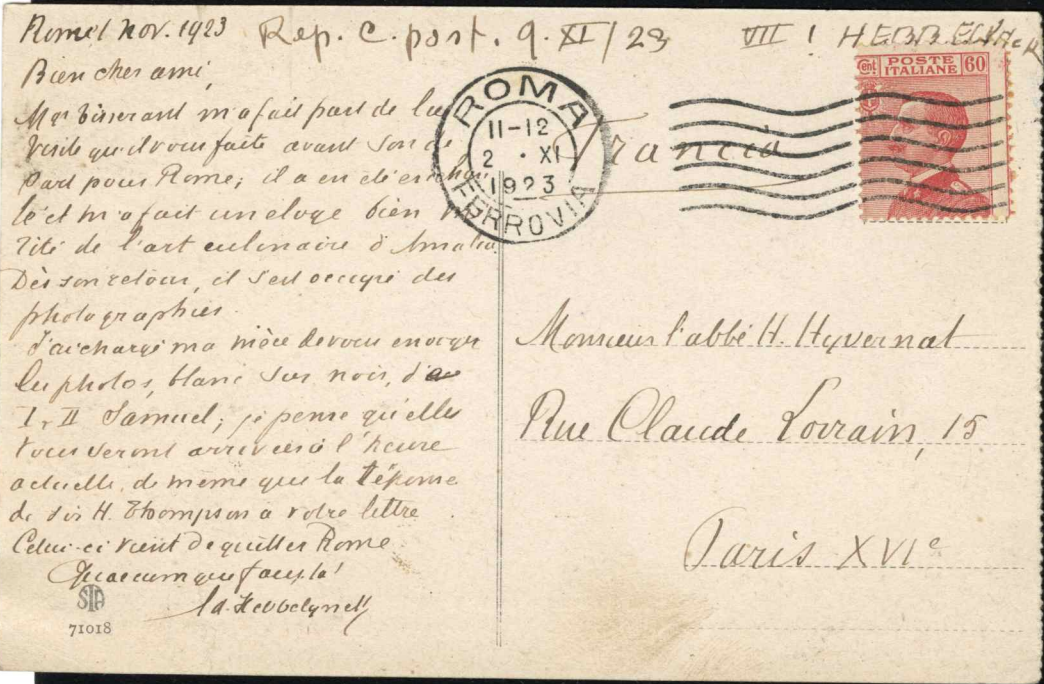 Rome 1 nov. 1923
Rep. c. post. 9. XI/23
VII ! HEBBELYNCK
Bien cher ami,
Mgr Tisserant m'a fait part de la
visite qu'il vous faite avant son dé
part pour Rome; il a en été enchan
té et m'a fait un éloge bien mé
rité de l'art culinaire d'Amalia
Dès son retour, il s'est occupé des
photographies.
J'ai chargé ma nièce de vous envoyer
les photos, blanc sur noir, de
I, II Samuel; je pense qu'elles
vous seront arrivées à l'heure
actuelle, de même que la réponse
de Sir H. Thompson à votre lettre
Celui-ci vient de quitter Rome
Quaecumque fausta!
Ad. Hebbelynck
STA
71018
ROMA
11-12
2 · XI
1923
FERROVIA
Francia
Cent
POSTE
ITALIANE
60
Monsieur l'abbé H. Hyvernat
Rue Claude Lorrain, 15
Paris XVIe